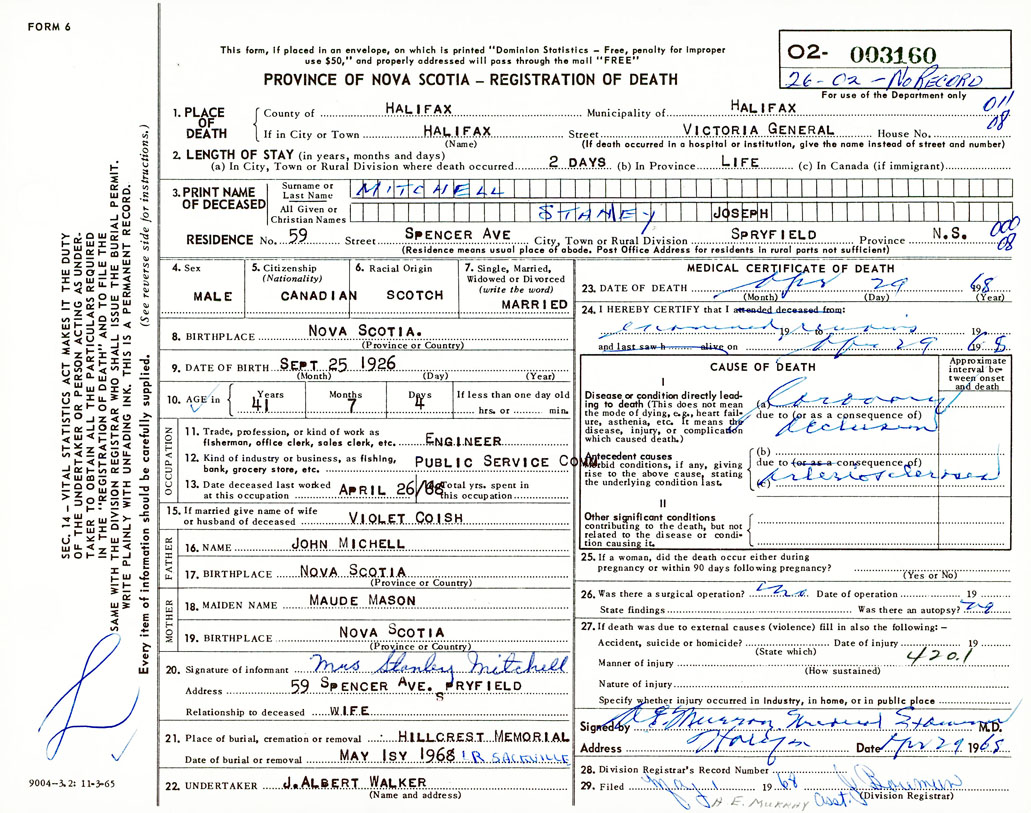 FORM 6
This form, if placed in an envelope, on which is printed "Dominion Statistics – Free, penalty for improper
use $50," and properly addressed will pass through the mail "FREE"
PROVINCE OF NOVA SCOTIA – REGISTRATION OF DEATH
O2- 003160
26-02-No RECORD
For use of the Department only
011
08
1. PLACE OF DEATH
County of HALIFAX Municipality of HALIFAX
If in City or Town HALIFAX Street VICTORIA GENERAL House No.
(Name) (If death occurred in a hospital or institution, give the name instead of street and number)
2. LENGTH OF STAY (in years, months and days)
(a) In City, Town or Rural Division where death occurred 2 DAYS (b) In Province LIFE (c) In Canada (if immigrant)
3. PRINT NAME OF DECEASED
Surname or Last Name MITCHELL
All Given or Christian Names STANEY JOSEPH
RESIDENCE No. 59 Street SPENCER AVE City, Town or Rural Division SPRYFIELD Province N.S.
000
08
(Residence means usual place of abode. Post Office Address for residents in rural parts not sufficient)
4. Sex
MALE
5. Citizenship
(Nationality)
CANADIAN
6. Racial Origin
SCOTCH
7. Single, Married,
Widowed or Divorced
(write the word)
MARRIED
8. BIRTHPLACE NOVA SCOTIA.
(Province or Country)
9. DATE OF BIRTH SEPT 25 1926
(Month) (Day) (Year)
10. AGE in Years Months Days If less than one day old
41 7 4 hrs. or min.
OCCUPATION
11. Trade, profession, or kind of work as
fisherman, office clerk, sales clerk, etc. ENGINEER
12. Kind of industry or business, as fishing,
bank, grocery store, etc. PUBLIC SERVICE COMM
13. Date deceased last worked
at this occupation APRIL 26/68
Total yrs. spent in
this occupation
15. If married give name of wife
or husband of deceased VIOLET COISH
FATHER
16. NAME JOHN MICHELL
17. BIRTHPLACE NOVA SCOTIA
(Province or Country)
MOTHER
18. MAIDEN NAME MAUDE MASON
19. BIRTHPLACE NOVA SCOTIA
(Province or Country)
20. Signature of informant Mrs Stanley Mitchell
Address 59 SPENCER AVE. SPRYFIELD
Relationship to deceased WIFE
21. Place of burial, cremation or removal HILLCREST MEMORIAL
Date of burial or removal MAY 1SY 1968 LR. SACKVILLE
22. UNDERTAKER J. ALBERT WALKER
(Name and address)
MEDICAL CERTIFICATE OF DEATH
23. DATE OF DEATH Apr 29 1968
(Month) (Day) (Year)
24. I HEREBY CERTIFY that I attended deceased from:
examined 19 remains 19
and last saw h alive on Apr 29 1968
CAUSE OF DEATH
Approximate
interval be-
tween onset
and death
I
Disease or condition directly lead-
ing to death (This does not mean
the mode of dying, e.g., heart fail-
ure, asthenia, etc. It means the
disease, injury, or complication
which caused death.)
(a) Coronary
due to (or as a consequence of)
occlusion
Antecedent causes
Morbid conditions, if any, giving
rise to the above cause, stating
the underlying condition last.
(b)
due to (or as a consequence of)
(c) Arteriosclerosis
II
Other significant conditions
contributing to the death, but not
related to the disease or condi-
tion causing it.
25. If a woman, did the death occur either during
pregnancy or within 90 days following pregnancy?
(Yes or No)
26. Was there a surgical operation? no Date of operation 19
State findings Was there an autopsy? no
27. If death was due to external causes (violence) fill in also the following: –
Accident, suicide or homicide? Date of injury 19
(State which)
420.1
Manner of injury
(How sustained)
Nature of injury
Specify whether injury occurred in industry, in home, or in public place
Signed by Murray Medical Examiner M.D.
Address Halifax Date Apr 29 1968
28. Division Registrar's Record Number
29. Filed May 1 1968 J Bowman
H. E. MURRAY asst. (Division Registrar)
SEC. 14 – VITAL STATISTICS ACT MAKES IT THE DUTY
OF THE UNDERTAKER OR PERSON ACTING AS UNDER-
TAKER TO OBTAIN ALL THE PARTICULARS REQUIRED
IN THE "REGISTRATION OF DEATH" AND TO FILE THE
SAME WITH THE DIVISION REGISTRAR WHO SHALL ISSUE THE BURIAL PERMIT.
WRITE PLAINLY WITH UNFADING INK. THIS IS A PERMANENT RECORD.
Every item of information should be carefully supplied. (See reverse side for instructions.)
9004-3.2: 11-3-65